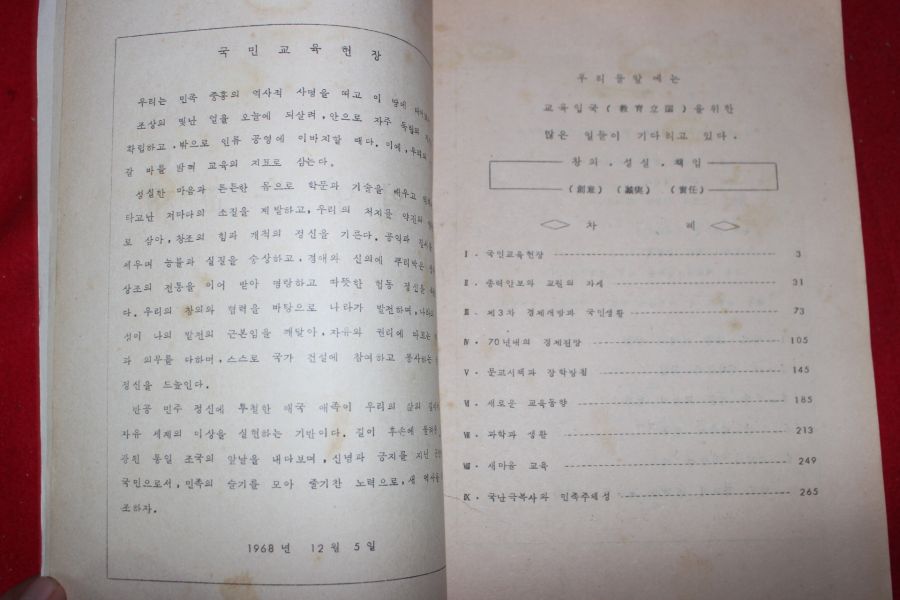 국민교육헌장
우리는 민족 중흥의 역사적 사명을 띠고 이 땅에
조상의 빛난 얼을 오늘에 되살려, 안으로 자주 독립의
확립하고, 밖으로 인류 공영에 이바지할 때다. 이에, 우리의
갈 바를 밝혀 교육의 지표로 삼는다.
성실한 마음과 튼튼한 몸으로 학문과 기술을 배우고
타고난 저마다의 소질을 계발하고, 우리의 처지를 약진의
로 삼아, 창조의 힘과 개척의 정신을 기른다. 공익과
세우며 능률과 실질을 숭상하고, 경애와 신의에 뿌리박은
상조의 전통을 이어 받아 명랑하고 따뜻한 협동 정신을
다. 우리의 창의와 협력을 바탕으로 나라가 발전하며, 나라의
성이 나의 발전의 근본임을 깨달아, 자유와 권리에 따르는
과 의무를 다하며, 스스로 국가 건설에 참여하고 봉사하는
정신을 드높인다.
반공 민주 정신에 투철한 애국 애족이 우리의 삶의
자유 세계의 이상을 실현하는 기반이다. 길이 후손에
광된 통일 조국의 앞날을 내다보며, 신념과 긍지를 지닌
국민으로서, 민족의 슬기를 모아 줄기찬 노력으로, 새 역사를
조하자.
1968년 12월 5일
우리들앞에는
교육입국(教育立國)을위한
많은 일들이 기다리고 있다.
창의. 성실. 책임
(創意) (誠実) (責任)
차 례
Ⅰ. 국민교육헌장 3
Ⅱ. 총력안보와 교원의 자세 31
Ⅲ. 제3차 경제개발과 국민생활 73
Ⅳ. 70년대의 경제전망 105
Ⅴ. 문교시책과 장학방침 145
Ⅵ. 새로운 교육동향 185
Ⅶ. 과학과 생활 213
Ⅷ. 새마을 교육 249
Ⅸ. 국난극복사와 민족주체성 265